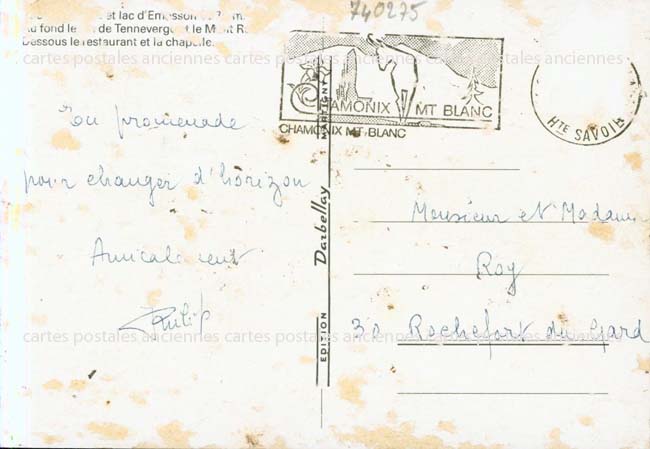 740275
et lac d'Emosson
au fond le de Tenneverge et le Mont R
Dessous le restaurant et la chapelle.
CHAMONIX MT BLANC
CHAMONIX MT BLANC
HTE SAVOIE
En promenade
pour changer d'horizon
Amicalement
Philip
EDITION Darbellay MARTIGNY
Monsieur et Madame
Roy
30 Rochefort du Gard
cartes postales anciennes cartes postales anciennes cartes postales anciennes
cartes postales anciennes cartes postales anciennes cartes postales anciennes
cartes postales anciennes cartes postales anciennes cartes postales anciennes